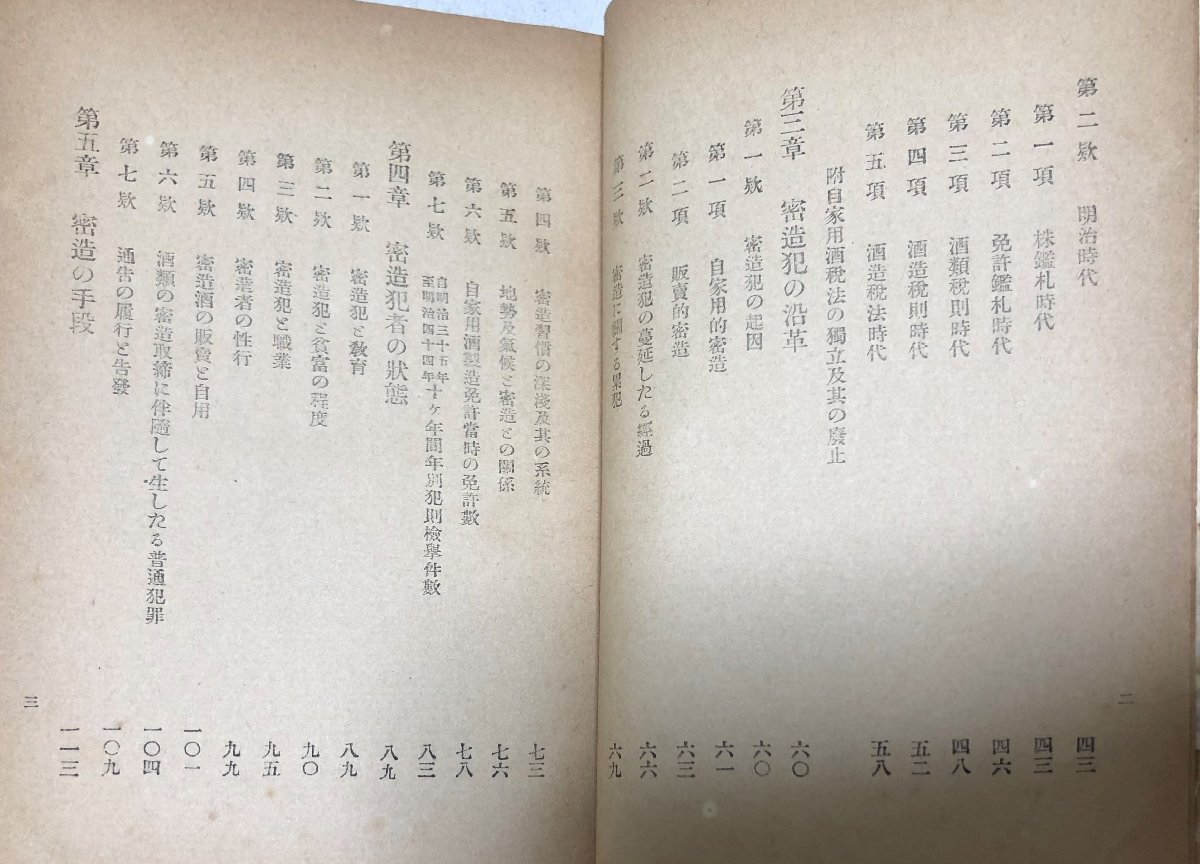 第二欵 明治時代 四三
第一項 株鑑札時代 四三
第二項 免許鑑札時代 四六
第三項 酒類稅則時代 四八
第四項 酒造稅則時代 五二
第五項 酒造稅法時代 五八
附自家用酒稅法の獨立及其の廢止
第三章 密造犯の沿革 六〇
第一欵 密造犯の起因 六〇
第一項 自家用的密造 六一
第二項 販賣的密造 六三
第二欵 密造犯の蔓延したる經過 六六
第三欵 密造に關する累犯 六九
二
第四欵 密造習慣の深淺及其の系統 七三
第五欵 地勢及氣候と密造との關係 七六
第六欵 自家用酒製造免許當時の免許數 七八
第七欵 自明治三十五年至明治四十四年十ヶ年間年別犯則檢擧件數 八三
第四章 密造犯者の狀態 八九
第一欵 密造犯と敎育 八九
第二欵 密造犯と貧富の程度 九〇
第三欵 密造犯と職業 九五
第四欵 密造者の性行 九九
第五欵 密造酒の販賣と自用 一〇一
第六欵 酒類の密造取締に伴隨して生したる普通犯罪 一〇四
第七欵 通告の履行と告發 一〇九
第五章 密造の手段 一一三
三